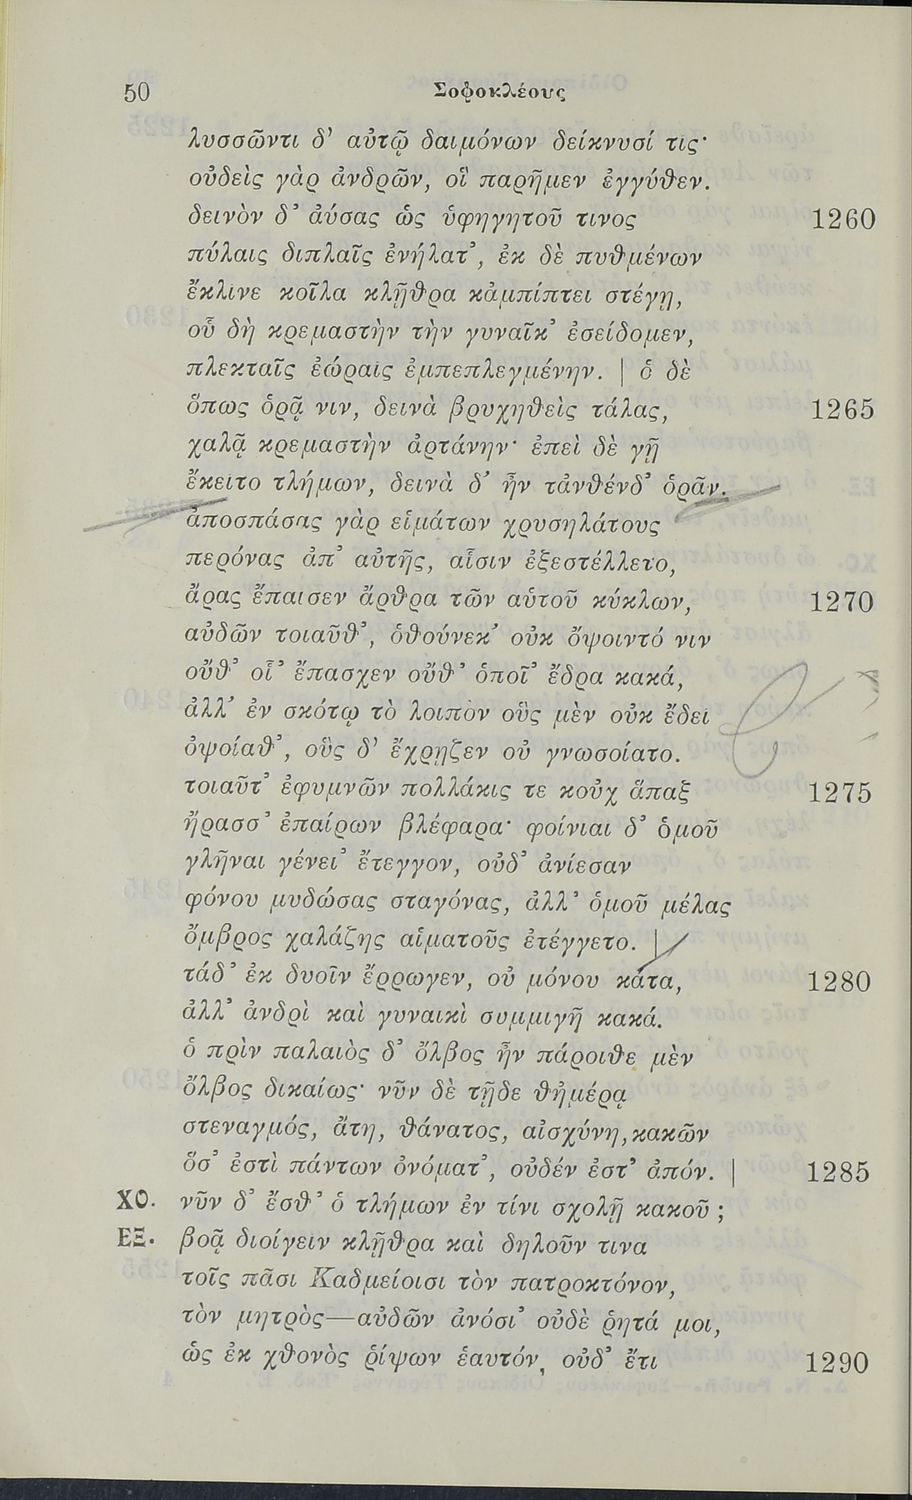 50
Σοφοκλέους
λυσσῶντι δ᾽ αὐτῷ δαιμόνων δείκνυσί τις·
οὐδεὶς γὰρ ἀνδρῶν, οἳ παρῆμεν ἐγγύθεν.
δεινὸν δ᾽ ἀύσας ὡς ὑφηγητοῦ τινος 1260
πύλαις διπλαῖς ἐνήλατ᾽, ἐκ δὲ πυθμένων
ἔκλινε κοῖλα κλῇθρα κἀμπίπτει στέγῃ,
οὗ δὴ κρεμαστὴν τὴν γυναῖκ᾽ ἐσείδομεν,
πλεκταῖς ἐώραις ἐμπεπλεγμένην. | ὁ δὲ
ὅπως ὁρᾷ νιν, δεινὰ βρυχηθεὶς τάλας, 1265
χαλᾷ κρεμαστὴν ἀρτάνην· ἐπεὶ δὲ γῇ
ἔκειτο τλήμων, δεινὰ δ᾽ ἦν τἀνθένδ᾽ ὁρᾶν.
ἀποσπάσας γὰρ εἱμάτων χρυσηλάτους
περόνας ἀπ᾽ αὐτῆς, αἷσιν ἐξεστέλλετο,
ἄρας ἔπαισεν ἄρθρα τῶν αὑτοῦ κύκλων, 1270
αὐδῶν τοιαῦθ᾽, ὁθούνεκ᾽ οὐκ ὄψοιντό νιν
οὔθ᾽ οἷ᾽ ἔπασχεν οὔθ᾽ ὁποῖ᾽ ἔδρα κακά,
ἀλλ᾽ ἐν σκότῳ τὸ λοιπὸν οὓς μὲν οὐκ ἔδει
ὀψοίαθ᾽, οὓς δ᾽ ἔχρῃζεν οὐ γνωσοίατο.
τοιαῦτ᾽ ἐφυμνῶν πολλάκις τε κοὐχ ἅπαξ 1275
ἤρασσ᾽ ἐπαίρων βλέφαρα· φοίνιαι δ᾽ ὁμοῦ
γλῆναι γένει᾽ ἔτεγγον, οὐδ᾽ ἀνίεσαν
φόνου μυδώσας σταγόνας, ἀλλ᾽ ὁμοῦ μέλας
ὄμβρος χαλάζης αἱματοῦς ἐτέγγετο. |
τάδ᾽ ἐκ δυοῖν ἔρρωγεν, οὐ μόνου κάτα, 1280
ἀλλ᾽ ἀνδρὶ καὶ γυναικὶ συμμιγῆ κακά.
ὁ πρὶν παλαιὸς δ᾽ ὄλβος ἦν πάροιθε μὲν
ὄλβος δικαίως· νῦν δὲ τῇδε θἠμέρᾳ
στεναγμός, ἄτη, θάνατος, αἰσχύνη, κακῶν
ὅσ᾽ ἐστὶ πάντων ὀνόματ᾽, οὐδέν ἐστ᾽ ἀπόν. | 1285
ΧΟ. νῦν δ᾽ ἔσθ᾽ ὁ τλήμων ἐν τίνι σχολῇ κακοῦ ;
ΕΞ. βοᾷ διοίγειν κλῇθρα καὶ δηλοῦν τινα
τοῖς πᾶσι Καδμείοισι τὸν πατροκτόνον,
τὸν μητρὸς—αὐδῶν ἀνόσι᾽ οὐδὲ ῥητά μοι,
ὡς ἐκ χθονὸς ῥίψων ἑαυτόν, οὐδ᾽ ἔτι 1290